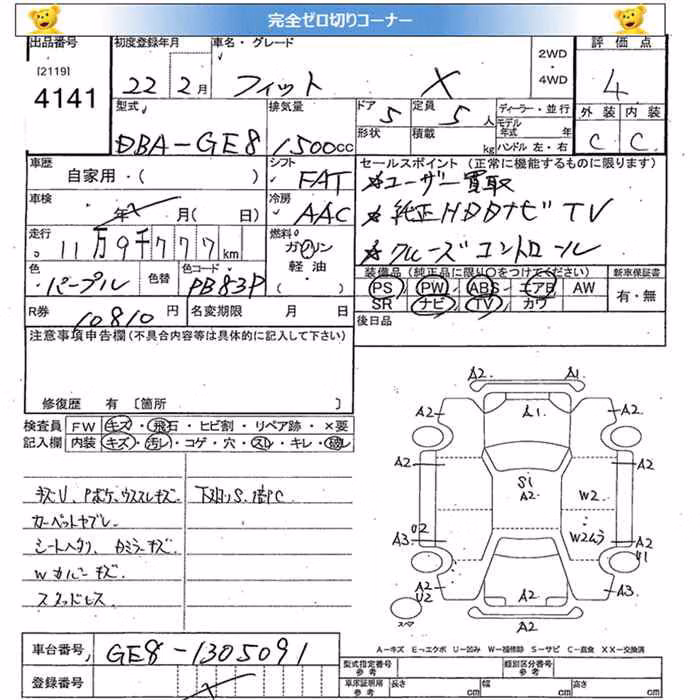 完全ゼロ切りコーナー
出品番号 初度登録年月 車名・グレード 2WD・4WD 評価点
[2119] 4141 22年 2月 フィット X 4
型式 排気量 ドア 定員 ディーラー・並行 外装 内装
DBA-GE8 1500cc 5 5人 モデル年式 C C
形状 積載 kg ハンドル 左・右
車歴 シフト セールスポイント (正常に機能するものに限ります)
自家用・( ) FAT ★ユーザー買取
車検 冷房 ★純正HDDナビ TV
年 X 月(日) AAC ★クルーズコントロール
走行 燃料
11万9千777km ガソリン 軽油
色 色替 色コード 装備品(純正品に限り○をつけてください) 新車保証書
パープル PB83P PS PW ABS エアB AW 有・無
SR ナビ TV カワ
R券 10810円 名変期限 月 日 後日品
注意事項申告欄(不具合内容等は具体的に記入して下さい)
修復歴 有 〔箇所 〕
検査員 FW キズ・飛石・ヒビ割・リペア跡・×要
記入欄 内装 キズ・汚レ・コゲ・穴・スレ・キレ・破レ
キズU、Pポケ、ウススレキズ 下廻りS、腐C
カーペットヤブレ
シートヘタリ、カミラーキズ
Wカバーキズ
スタッドレス
A2. A1.
A2 A1. A2
A2 S1 A2 W2 A2
A3 U2 W2ムラ A2 U1
A2 U2 A2 A3
スペア A2
A-キズ E-エクボ U-凹み W-補修跡 S-サビ C-腐食 XX-交換済
車台番号 GE8-1305091
型式指定番号 参考 類別区分番号 参考
登録番号 X
車庫証明用 参考 長さ cm 幅 cm 高さ cm